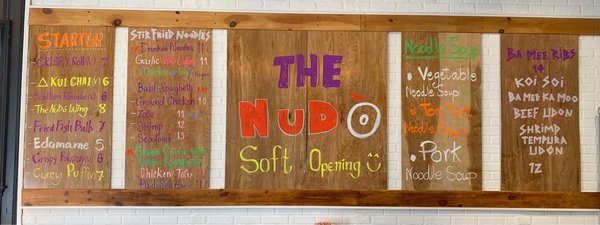 STARTER
CRISPY Roll (V) 7
△ KUI CHAI (V) 6
Scallion Pancake (V) 6
The NuDo Wing 8
Fried Fish Ball 7
Edamame 5
Crispy 7
Curry Puff (V) 7
STIR FRIED NOODLES
Drunken Noodles 11
Garlic
Basil Spaghetti
Ground Chicken 10
Tofu 11
Shrimp 13
Seafood 13
Green Curry with
Chicken Tofu
THE
NUDO
Soft Opening
Noodle Soup
• Vegetable
Noodle Soup
• Tom Yum
Noodle Soup
• Pork
Noodle Soup
BA MEE RIBS
14
KOI SOI
BA MEE KA MOO
BEEF UDON
SHRIMP
TEMPURA
UDON
12